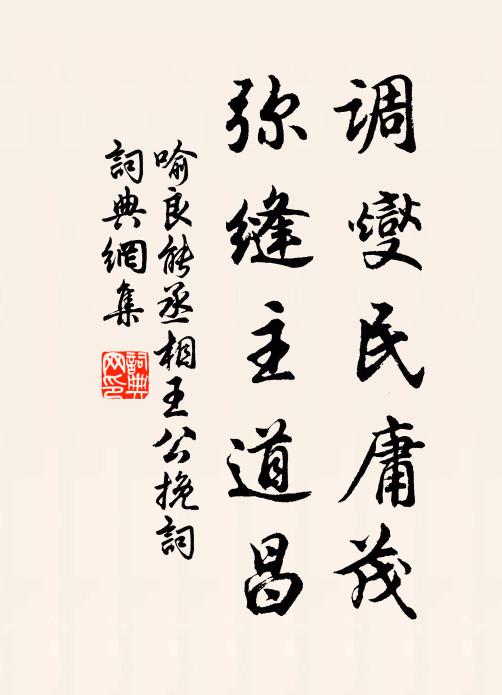 调燮民庸茂
弥缝主道昌
喻良能丞相王公挽詞
詞典網集
詞典
网印